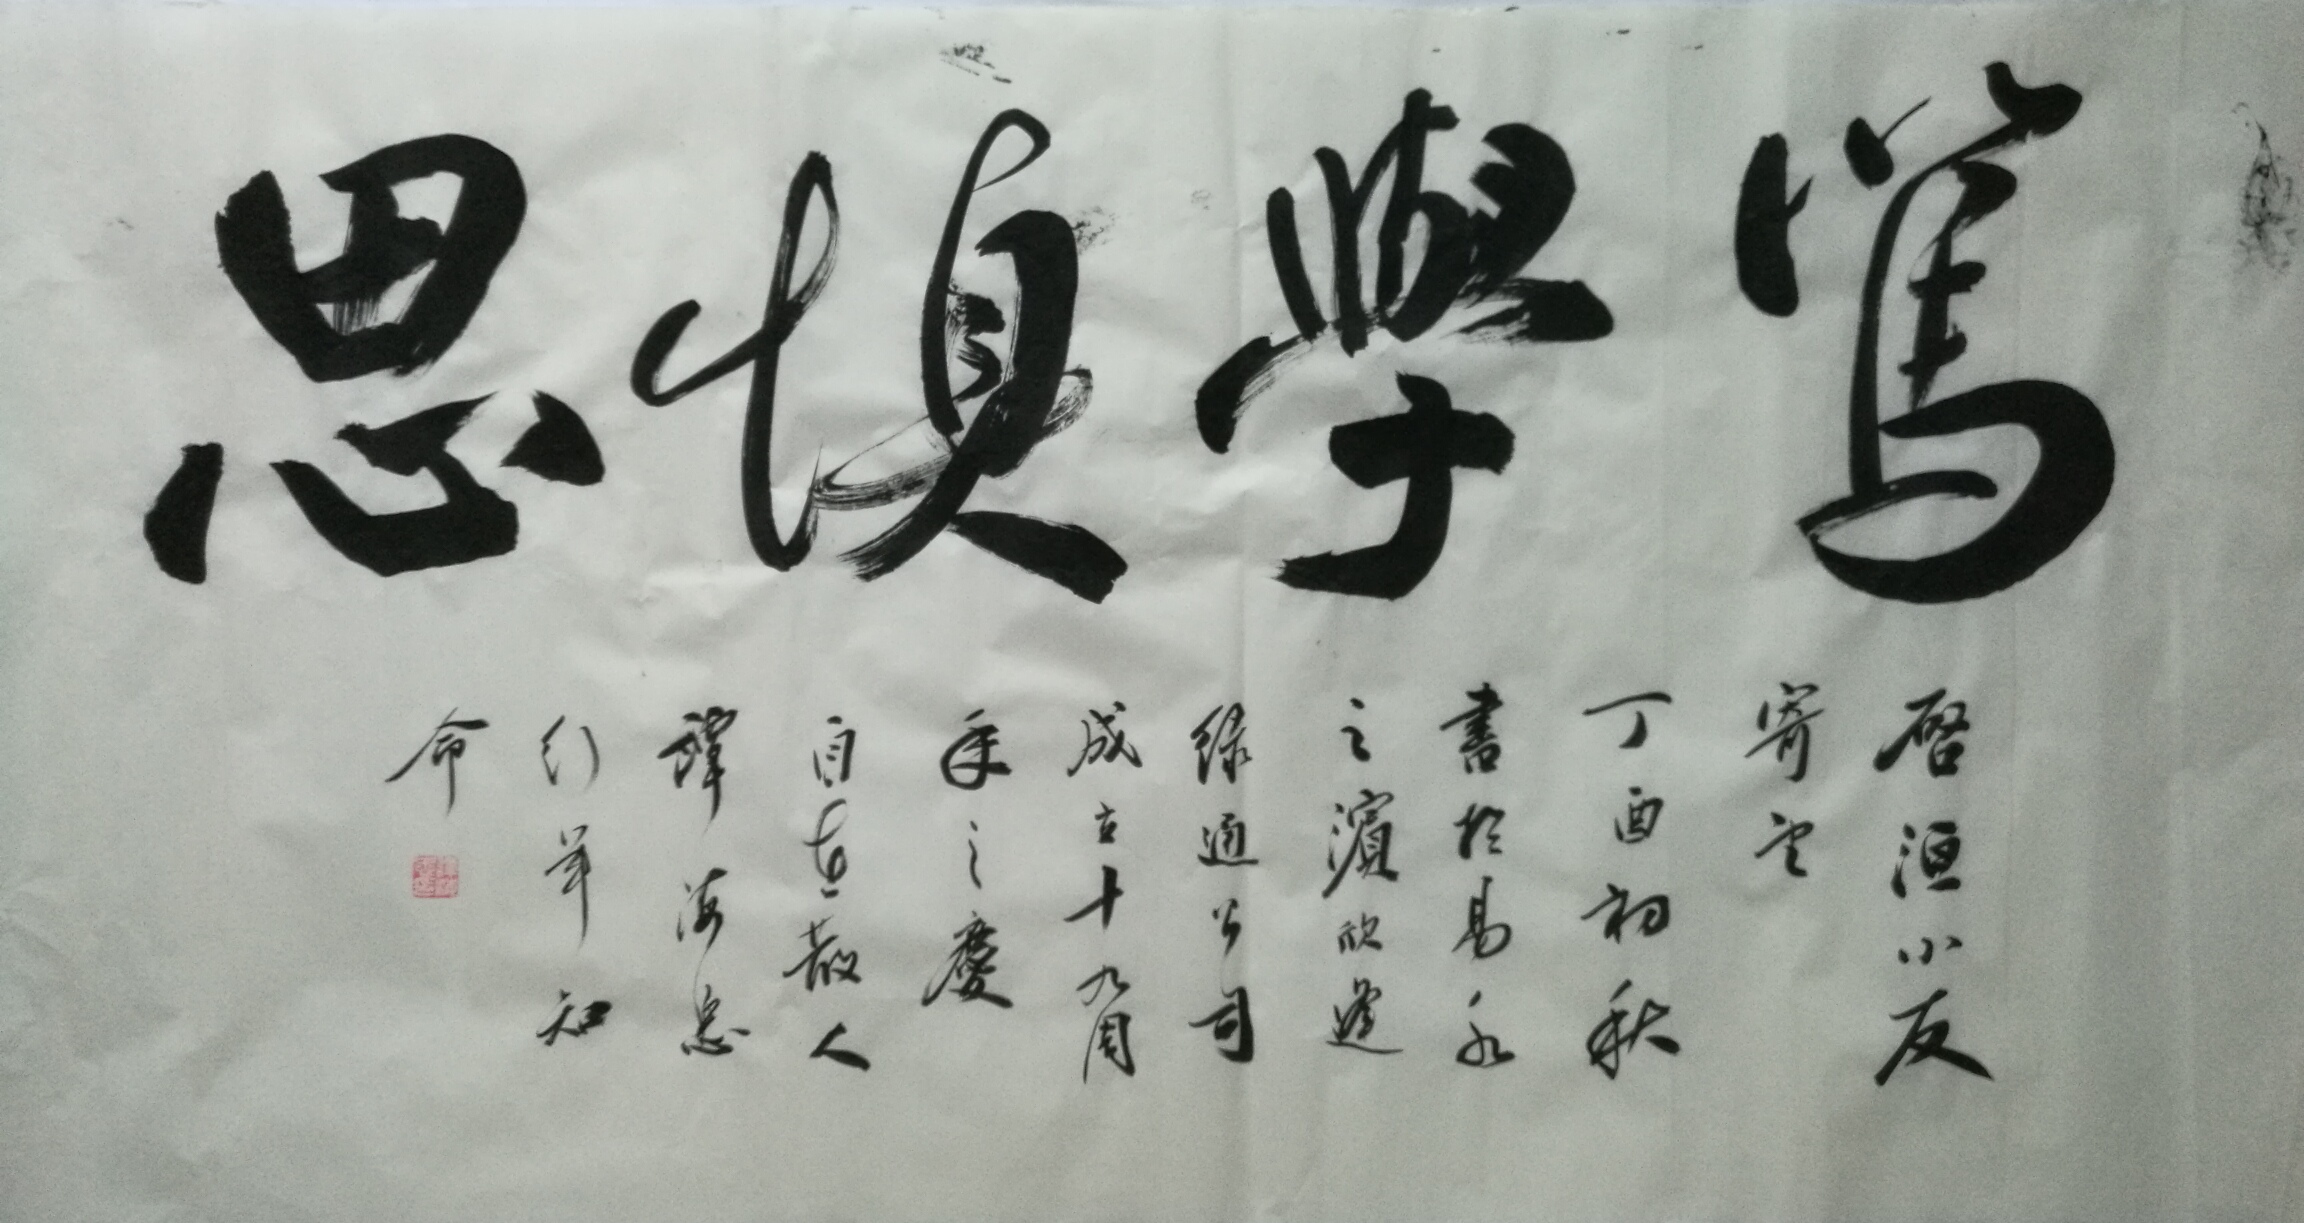 篤學慎思
啓洹小友
寄望
丁酉初秋
書於易水
之濱欣逢
绿通公司
成立十九周
年之慶
自在散人
海忠
行年知
命